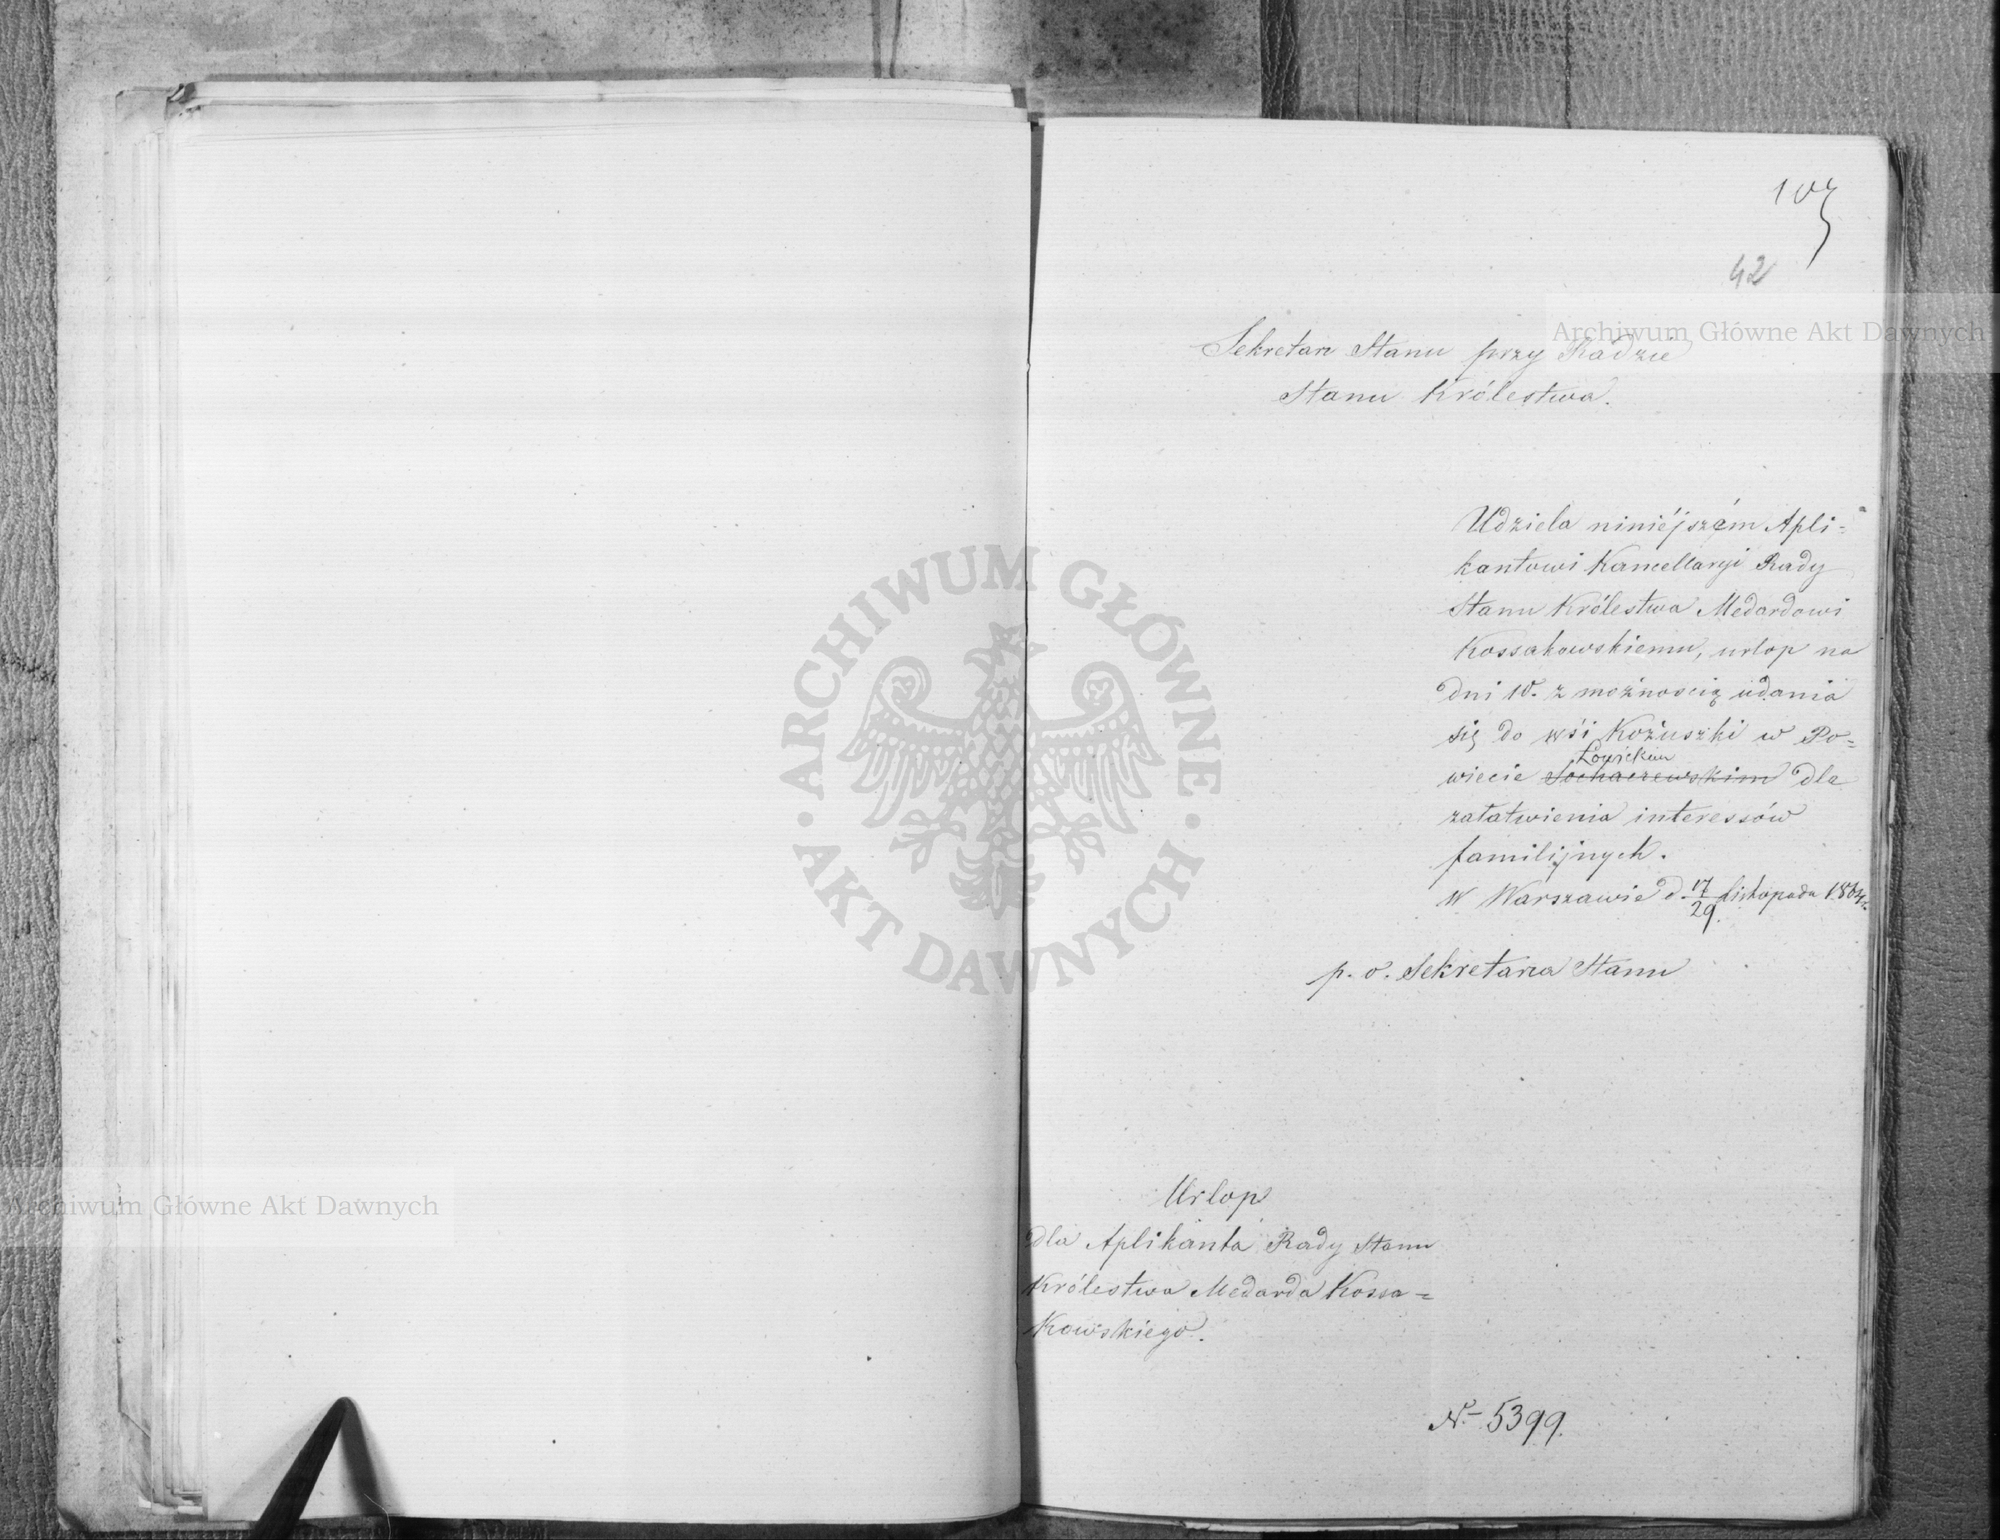 103
42
Sekretarz Stanu przy Radzie
Stanu Królestwa.
Udziela niniéjszém Apli-
kantowi Kancellaryi Rady
Stanu Królestwa Medardowi
Kossakowskiemu, urlop na
dni 10. z możnością udania
się do wsi Kożuszki w Po=
Łowickim
wiecie Sochaczewskim dla
załatwienia interessów
familijnych.
W Warszawie d. 17/29 Listopada 1864 r.
p. o. Sekretarza Stanu
Urlop
dla Aplikanta Rady Stanu
Królestwa Medarda Kossa=
kowskiego.
N. 5399.
Archiwum Główne Akt Dawnych
Archiwum Główne Akt Dawnych
ARCHIWUM GŁÓWNE · AKT DAWNYCH ·